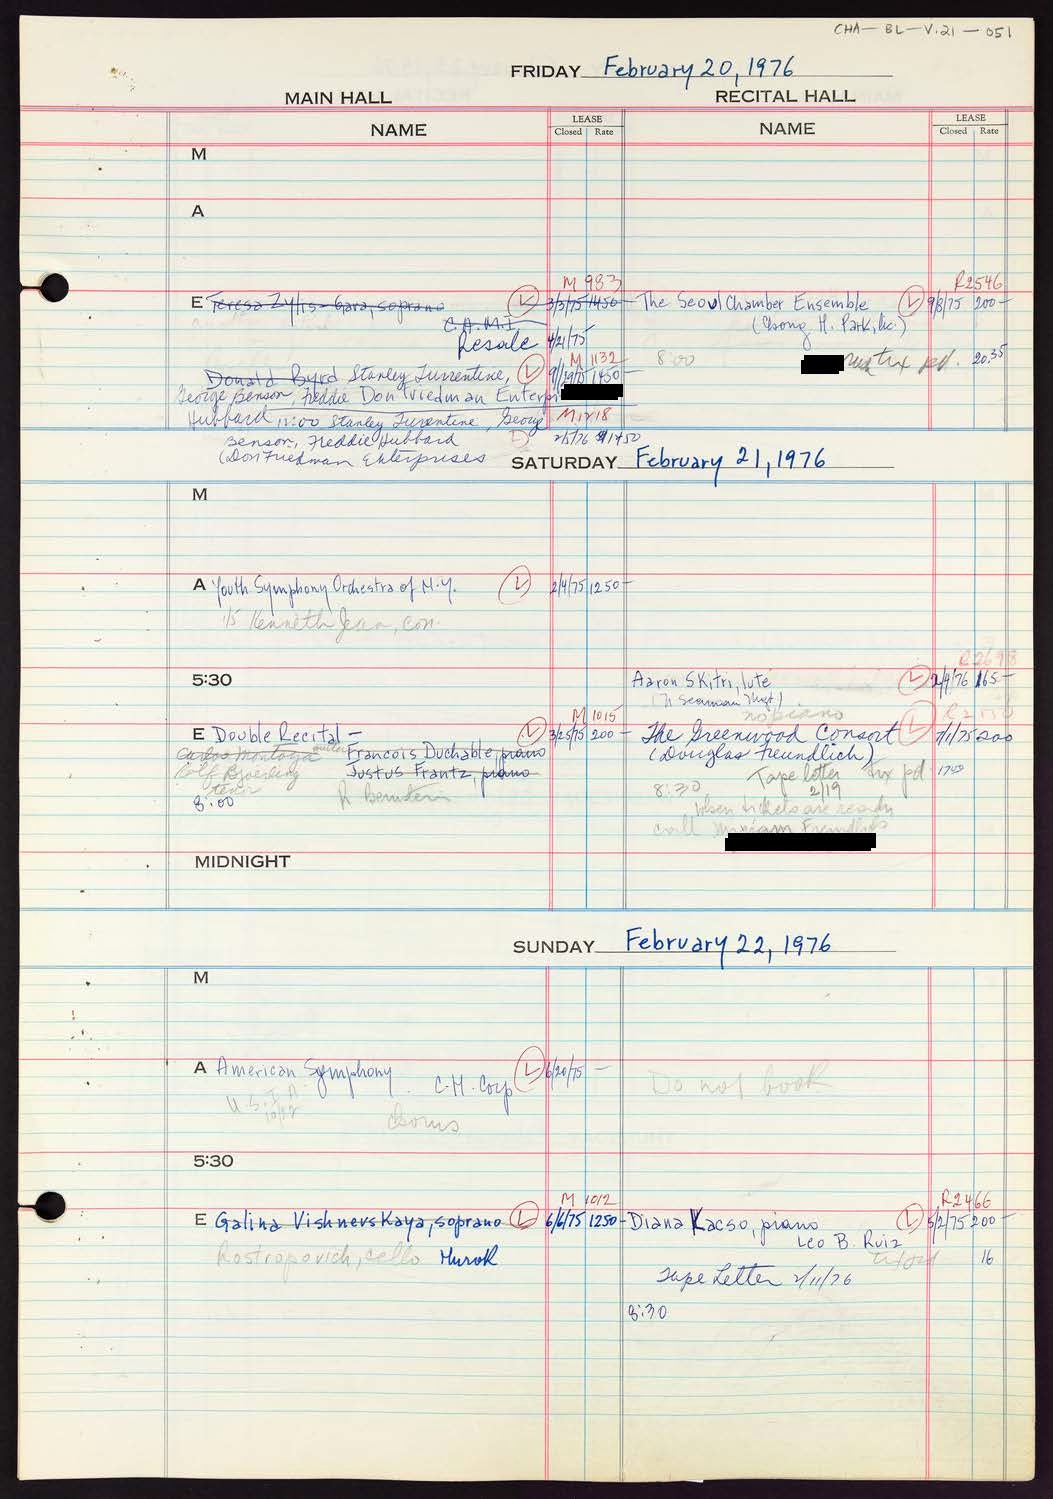 CHA-BL-V.21-051
FRIDAY February 20, 1976
MAIN HALL RECITAL HALL
NAME LEASE Closed Rate NAME LEASE Closed Rate
M
A
M 983 R2546
E Teresa Zylis-Gara, soprano L 3/3/75 1450- The Seoul Chamber Ensemble L 9/8/75 200-
C.A.M.I. (Chong H. Park, Inc.)
Resale 4/21/75
8:00 tix pd. 20.35
M 1132
Donald Byrd Stanley Turrentine, L 1450
George Benson, Freddie Don Friedman Enterpr
Hubbard 12:00 Stanley Turrentine, George M1218
Benson, Freddie Hubbard 2/5/76 $1450
(Don Friedman Enterprises
SATURDAY February 21, 1976
M
A Youth Symphony Orchestra of N.Y. L 2/4/75 1250-
Kenneth Jean, con.
R2698
5:30 Aaron Skitri, lute L 2/9/76 165-
no piano
M 1015
E Double Recital - L 3/25/75 200- The Greenwood Consort L 7/1/75 200
Carlos Montoya guitar Francois Duchable, piano (Douglas Freundlich)
Justus Frantz, piano Tape letter tix pd.
tenor 2/19
8:00 R Bernstein 8:30
When tickets are ready
call Miriam Freundlich
MIDNIGHT
SUNDAY February 22, 1976
M
A American Symphony C.H. Corp L 6/20/75 - Do not book
U.S.I.A.
10/22
5:30
M 1012 R2466
E Galina Vishnevskaya, soprano L 6/6/75 1250- Diana Kacso, piano L 5/2/75 200-
Leo B. Ruiz
Rostropovich, cello Hurok tix pd 16
Tape Letter 2/11/76
8:30